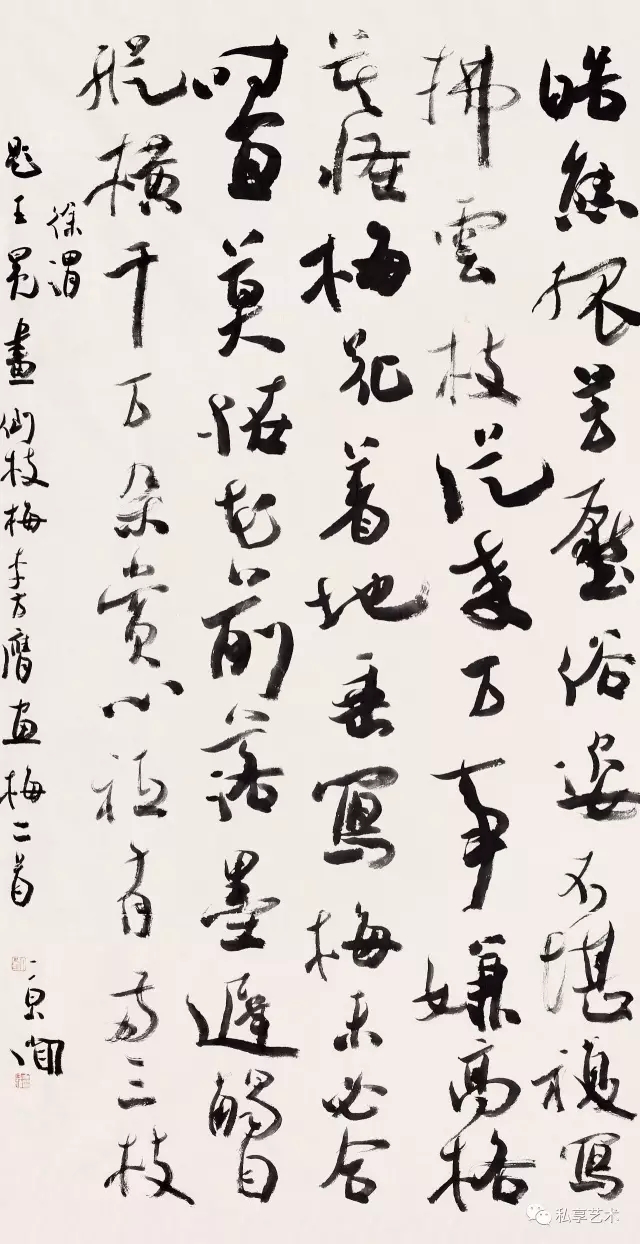 皓態孤芳壓俗姿不堪複寫
拂雲枝從來万事嫌高格
莫怪梅花着地垂寫梅未必合
時宜莫怪花前落墨遲觸目
縱橫千万朵賞心祗有两三枝
徐渭
題王冕畫倒枝梅李方膺画梅二首
私享艺术